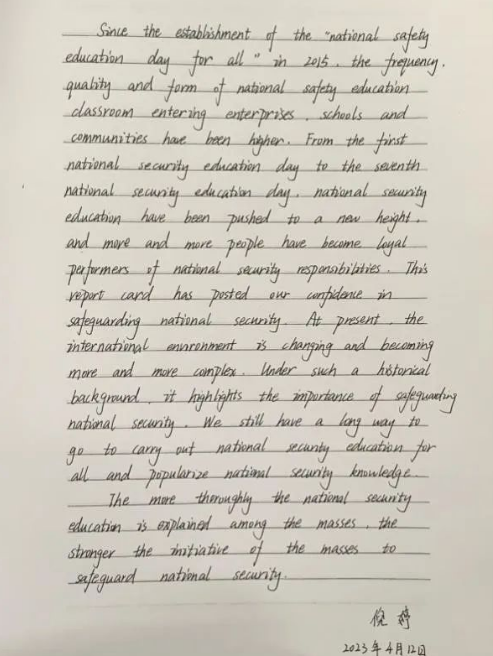 Since the establishment of the "national safety
education day for all" in 2015, the frequency,
quality and form of national safety education
classroom entering enterprises, schools and
communities have been higher. From the first
national security education day to the seventh
national security education day, national security
education have been pushed to a new height,
and more and more people have become loyal
performers of national security responsibilities. This
report card has posted our confidence in
safeguarding national security. At present, the
international environment is changing and becoming
more and more complex. Under such a historical
background, it highlights the importance of safeguarding
national security. We still have a long way to
go to carry out national security education for
all and popularize national security knowledge.
The more thoroughly the national security
education is explained among the masses, the
stronger the initiative of the masses to
safeguard national security.
倪婷
2023年4月12日